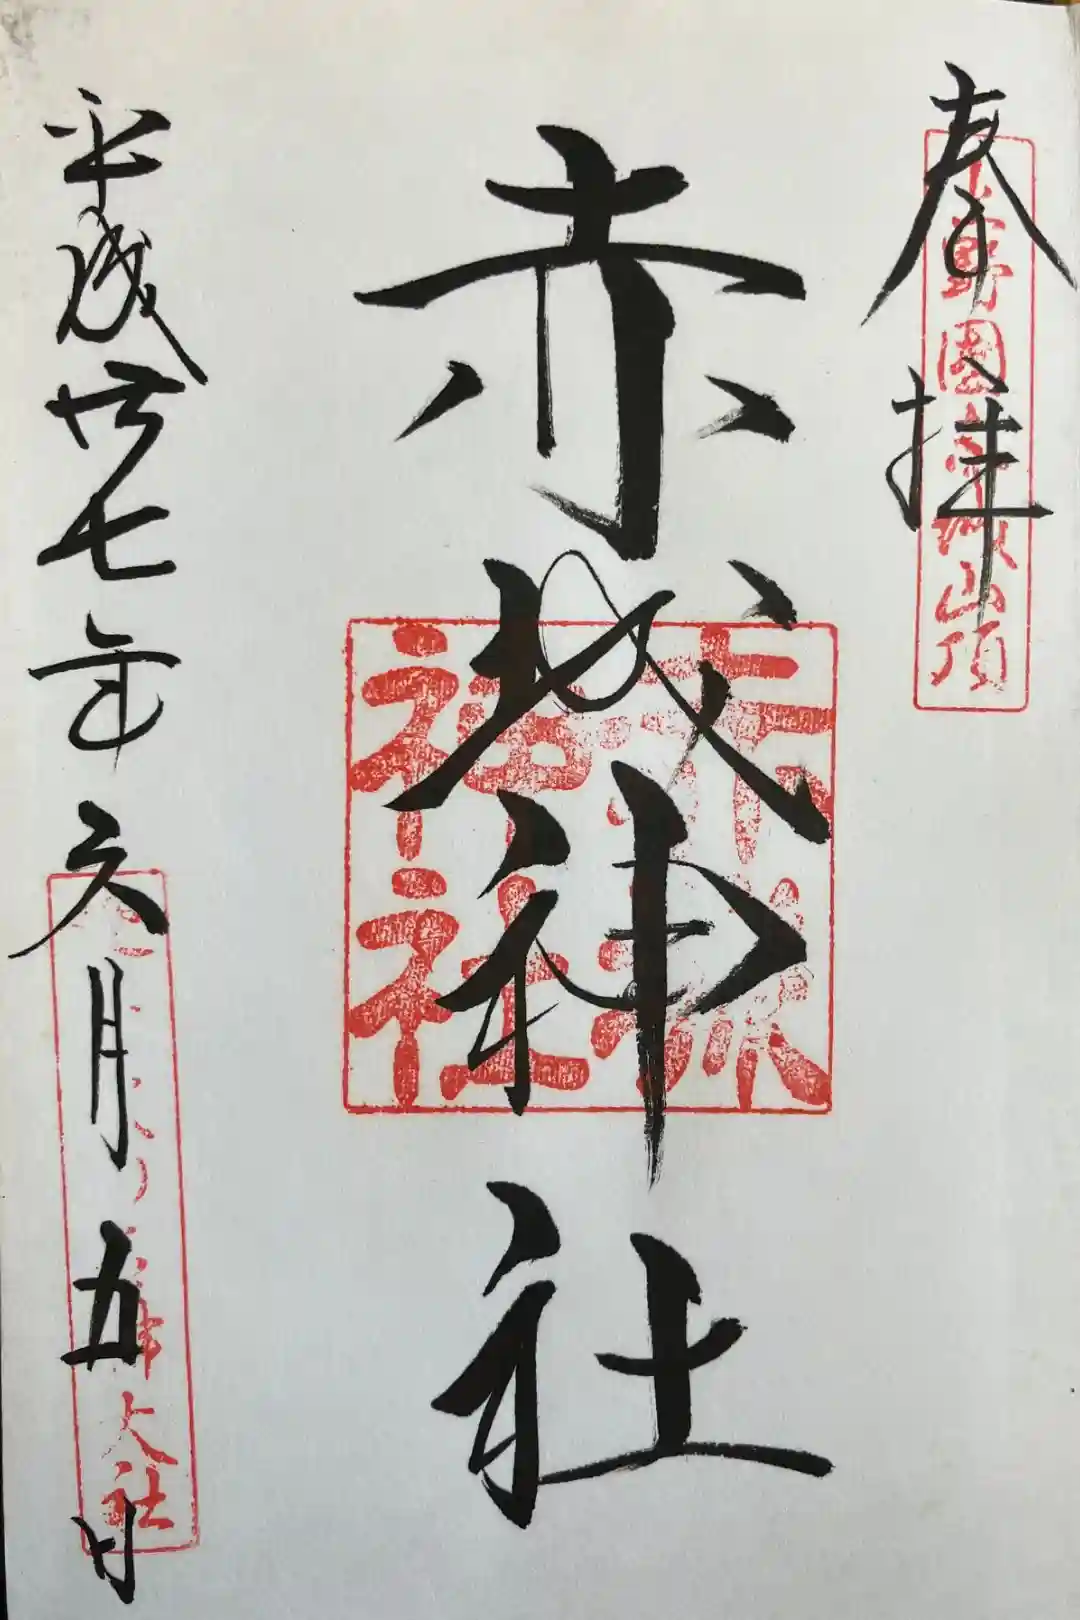 奉拝
上野國赤城山頂
赤城神社
赤城神社
平成廿七年六月五日
大社